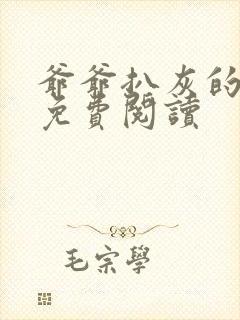 爺爺扒灰的
免費閱讀
毛宗學